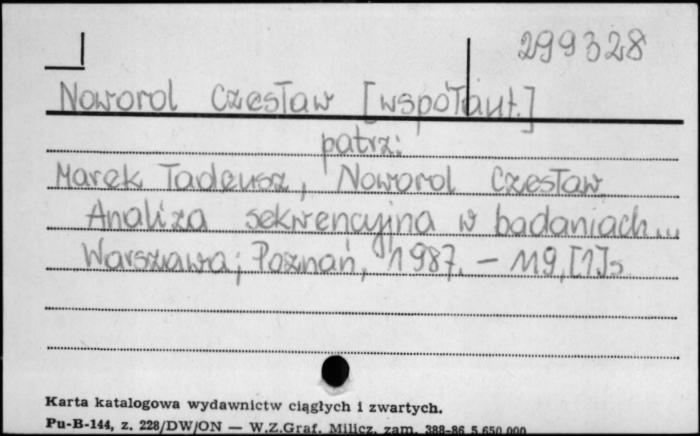 299328
Noworol Czesław [współaut.]
patrz:
Marek Tadeusz, Noworol Czesław
Analiza sekwencyjna w badaniach...
Warszawa; Poznań, 1987. - 119, [1] s
Karta katalogowa wydawnictw ciągłych i zwartych.
Pu-B-144, z. 228/DW/ON — W.Z.Graf. Milicz, zam. 388-86 5.650.000